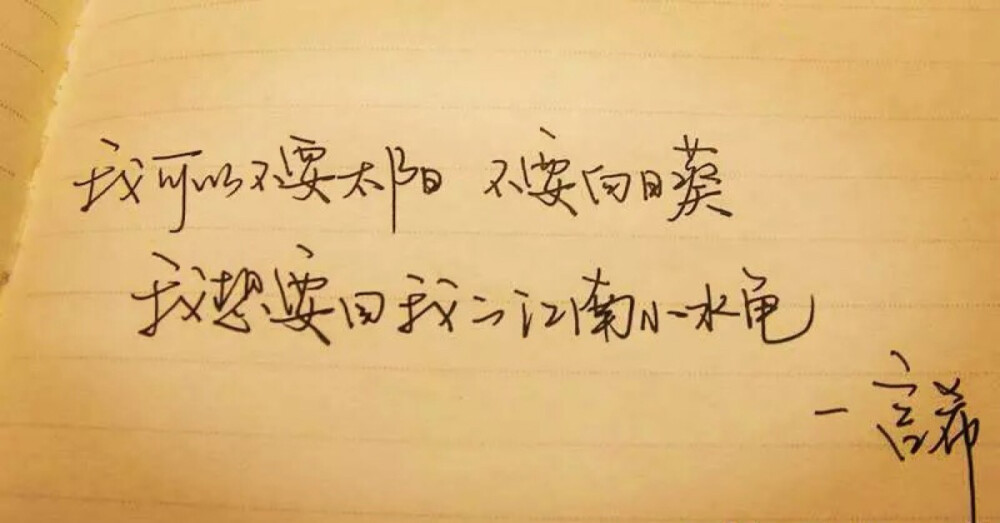 我可以不要太阳 不要向日葵
我想要回我的江南小水龟
—宫希